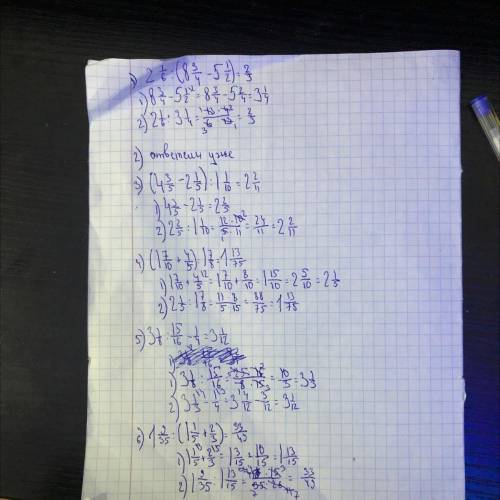 1) 2 1/6 : (8 3/4 - 5 1/2) = 2/3
1) 8 3/4 - 5 1/2 = 8 3/4 - 5 2/4 = 3 1/4
2) 2 1/6 : 3 1/4 = 13·4/6·13 = 2/3
2) ответили уже
3) (4 3/5 - 2 1/5) : 1 1/10 = 2 2/11
1) 4 3/5 - 2 1/5 = 2 2/5
2) 2 2/5 : 1 1/10 = 12·10/5·11 = 24/11 = 2 2/11
4) (1 7/10 + 4/5) : 1 7/8 = 1 13/75
1) 1 7/10 + 4/5 = 1 7/10 + 8/10 = 1 15/10 = 2 5/10 = 2 1/5
2) 2 1/5 : 1 7/8 = 11/5 · 8/15 = 88/75 = 1 13/75
5) 3 1/8 : 15/16 - 1/4 = 3 1/12
1) 3 1/8 : 15/16 = 25·16/8·15 = 10/3 = 3 1/3
2) 3 1/3 - 1/4 = 3 4/12 - 3/12 = 3 1/12
6) 1 2/35 : (1 1/5 + 2/3) = 33/43
1) 1 1/5 + 2/3 = 1 3/15 + 10/15 = 1 13/15
2) 1 2/35 : 1 13/15 = = 33/43